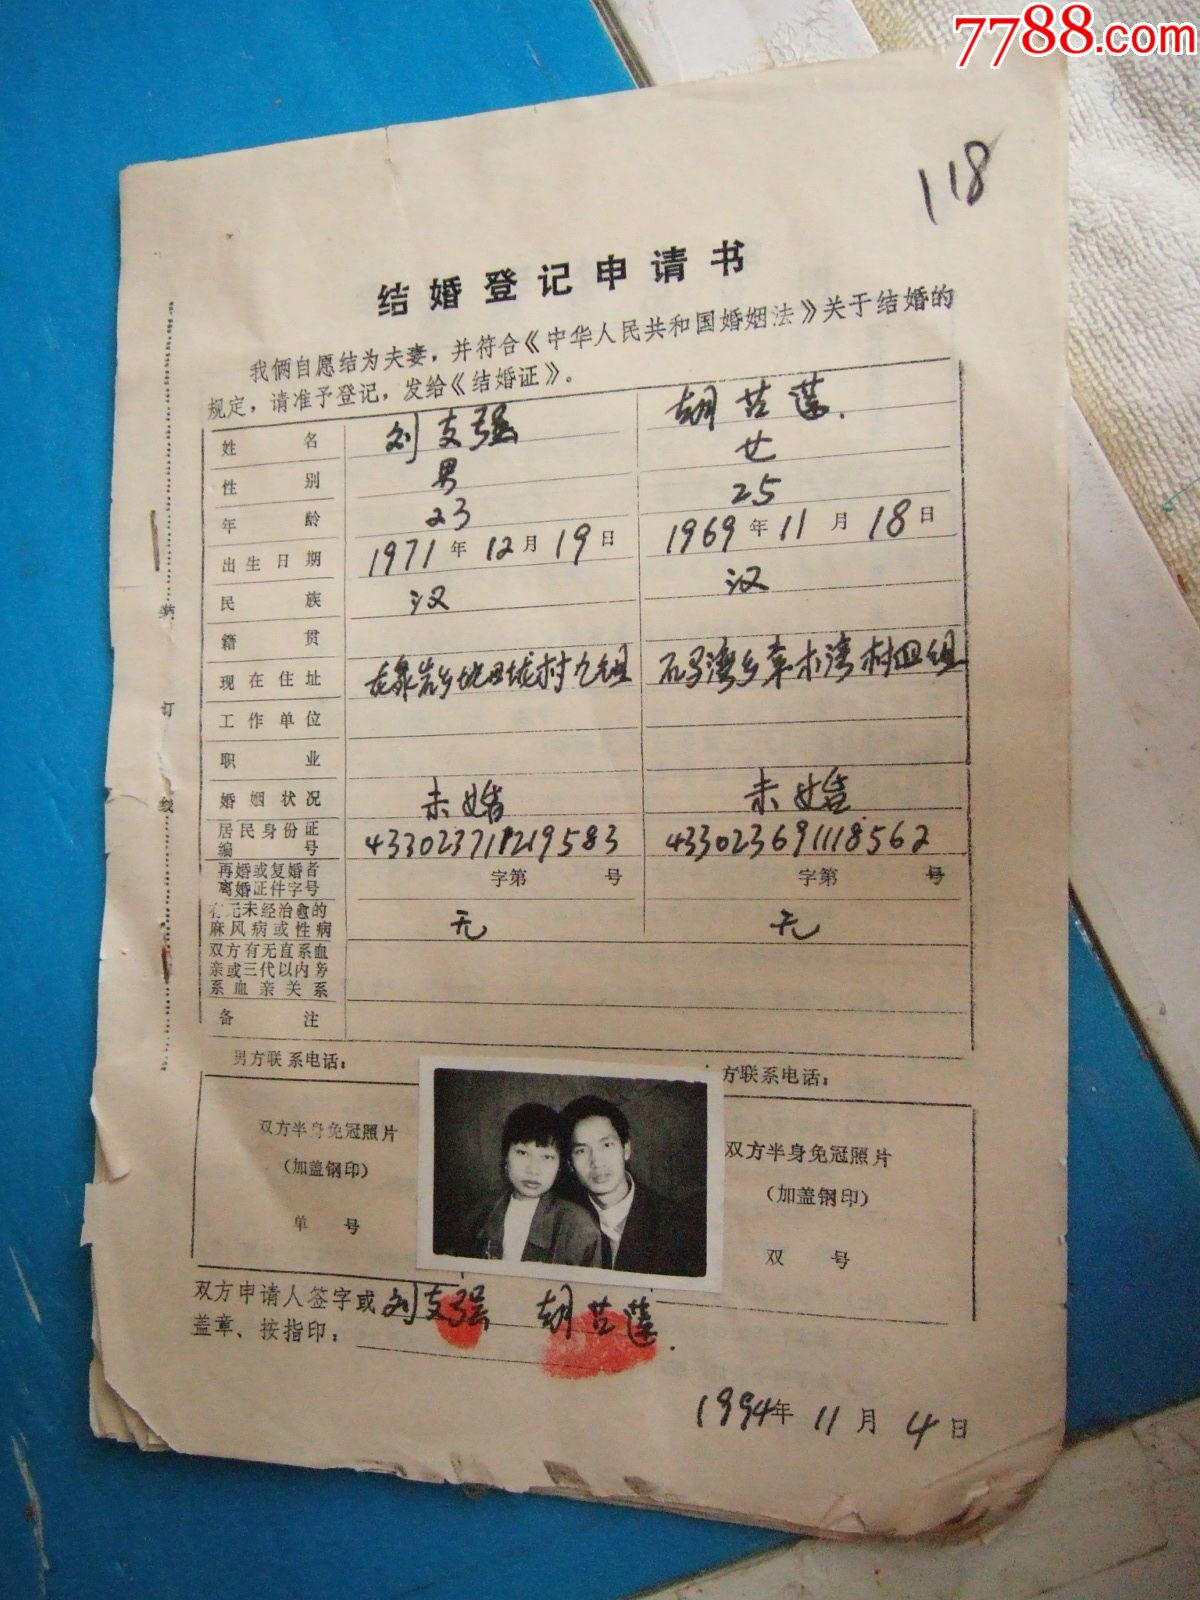 7788.com
118
结婚登记申请书
我俩自愿结为夫妻，并符合《中华人民共和国婚姻法》关于结婚的
规定，请准予登记，发给《结婚证》。
姓名 刘支强 胡苦莲
性别 男 女
年龄 23 25
出生日期 1971年12月19日 1969年11月18日
民族 汉 汉
籍贯
现在住址 村九组 湾乡 木湾村四组
工作单位
职业
婚姻状况 未婚 未婚
居民身份证
编号 433023711219583 433023691118562
再婚或复婚者
离婚证件字号 字第 号 字第 号
有无未经治愈的
麻风病或性病 无 无
双方有无直系血
亲或三代以内旁
系血亲关系
备注
男方联系电话： 方联系电话：
双方半身免冠照片 双方半身免冠照片
（加盖钢印） （加盖钢印）
单号 双号
双方申请人签字或 刘支强 胡苦莲
盖章、按指印：
1994年11月4日
装订线